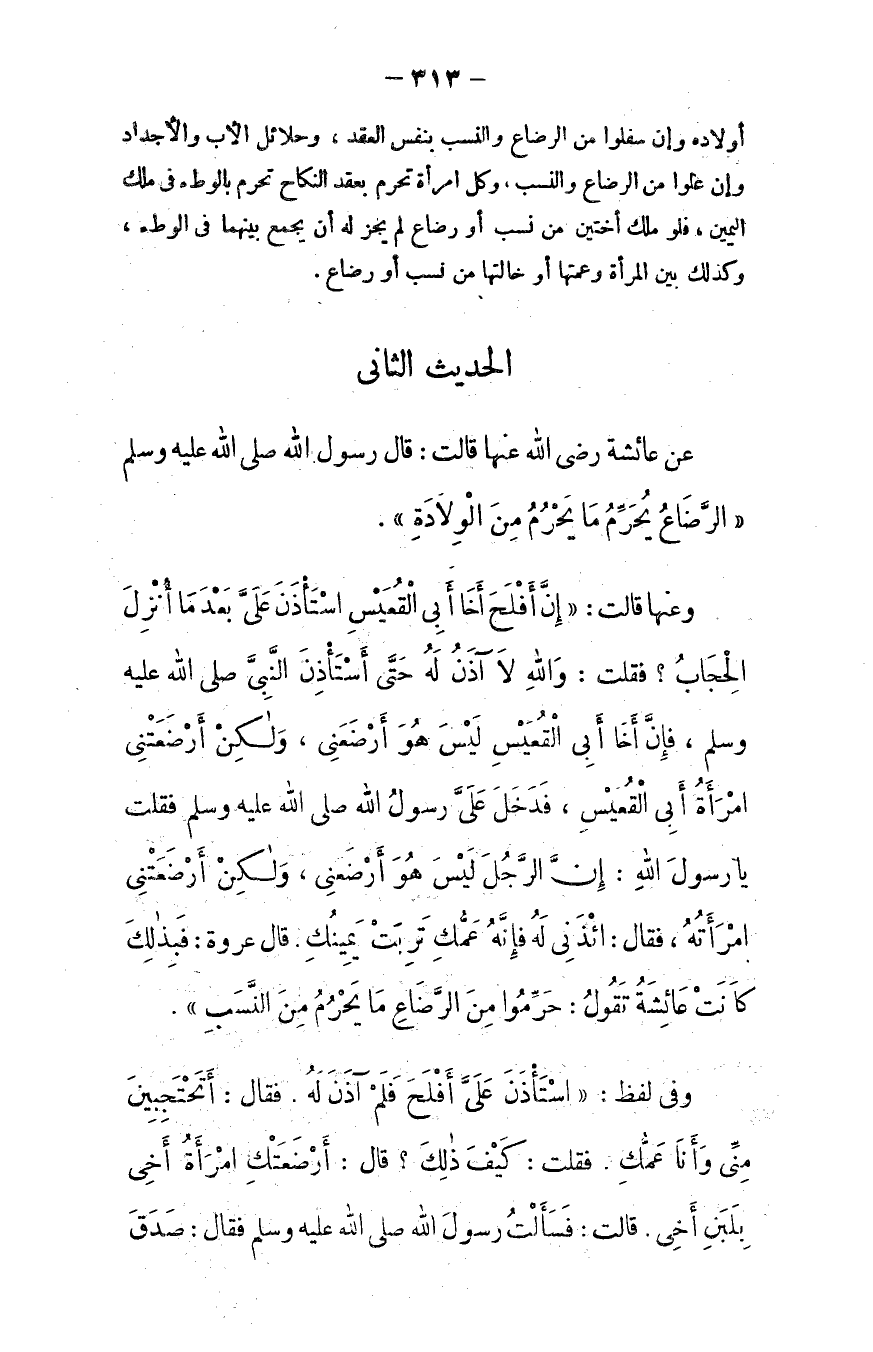 - ٣١٣ -
أولاده وإن سفلوا من الرضاع والنسب بنفس العقد ، وحلائل الأب والأجداد
وإن علوا من الرضاع والنسب ، وكل امرأة تحرم بعقد النكاح تحرم بالوطء فى ملك
اليمين ، فلو ملك أختين من نسب أو رضاع لم يجز له أن يجمع بينهما فى الوطء ،
وكذلك بين المرأة وعمتها أو خالتها من نسب أو رضاع .
الحديث الثانى
عن عائشة رضى الله عنها قالت : قال رسول الله صلى الله عليه وسلم
« الرَّضَاعُ يُحَرِّمُ مَا يَحْرُمُ مِنَ الْوِلاَدَةِ » .
وعنها قالت : « إِنَّ أَفْلَحَ أَخَا أَبِى الْقُعَيْسِ اسْتَأْذَنَ عَلَىَّ بَعْدَ مَا أُنْزِلَ
الْحِجَابُ ؟ فقلت : وَاللهِ لاَ آذَنُ لَهُ حَتَّى أَسْتَأْذِنَ النَّبِىَّ صلى الله عليه
وسلم ، فَإِنَّ أَخَا أَبِى الْقُعَيْسِ لَيْسَ هُوَ أَرْضَعَنِى ، وَلٰكِنْ أَرْضَعَتْنِى
امْرَأَةُ أَبِى الْقُعَيْسِ ، فَدَخَلَ عَلَىَّ رسولُ الله صلى الله عليه وسلم فقلت
يا رسولَ اللهِ : إِنَّ الرَّجُلَ لَيْسَ هُوَ أَرْضَعَنِى ، وَلٰكِنْ أَرْضَعَتْنِى
امْرَأَتُهُ ، فقال : ائْذَنِى لَهُ فَإِنَّهُ عَمُّكِ تَرِبَتْ يَمِينُكِ . قال عروة : فَبِذٰلِكَ
كَانَتْ عَائِشَةُ تَقُولُ : حَرِّمُوا مِنَ الرَّضَاعِ مَا يَحْرُمُ مِنَ النَّسَبِ » .
وفى لفظ : « اسْتَأْذَنَ عَلَىَّ أَفْلَحَ فَلَمْ آذَنْ لَهُ . فقال : أَتَحْتَجِبِينَ
مِنِّى وَأَنَا عَمُّكِ . فقلت : كَيْفَ ذٰلِكَ ؟ قال : أَرْضَعَتْكِ امْرَأَةُ أَخِى
بِلَبَنِ أَخِى . قالت : فَسَأَلْتُ رسولَ الله صلى الله عليه وسلم فقال : صَدَقَ